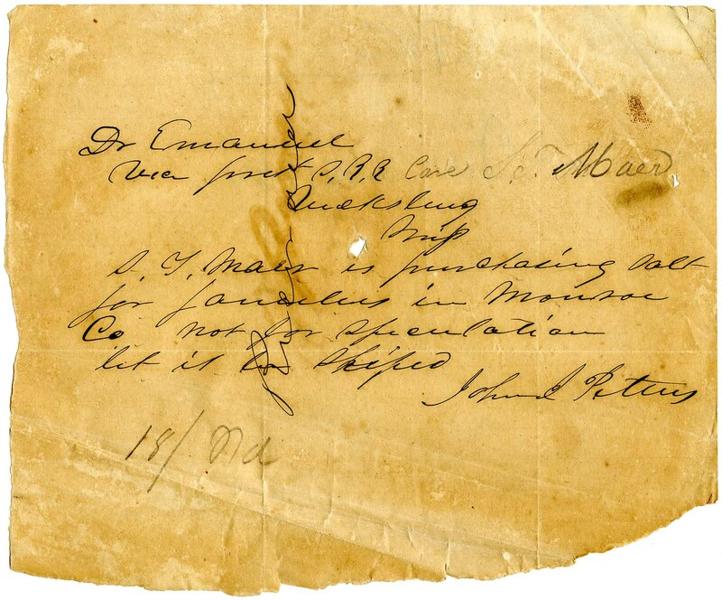 Dr Emanuel
Vice prest S. R. R Care S. T. Maer
Vicksburg
Miss
S. T. Maer is purchasing salt
for families in Monroe
Co not for speculation
let it be shiped
John J Peters
18/ Nd